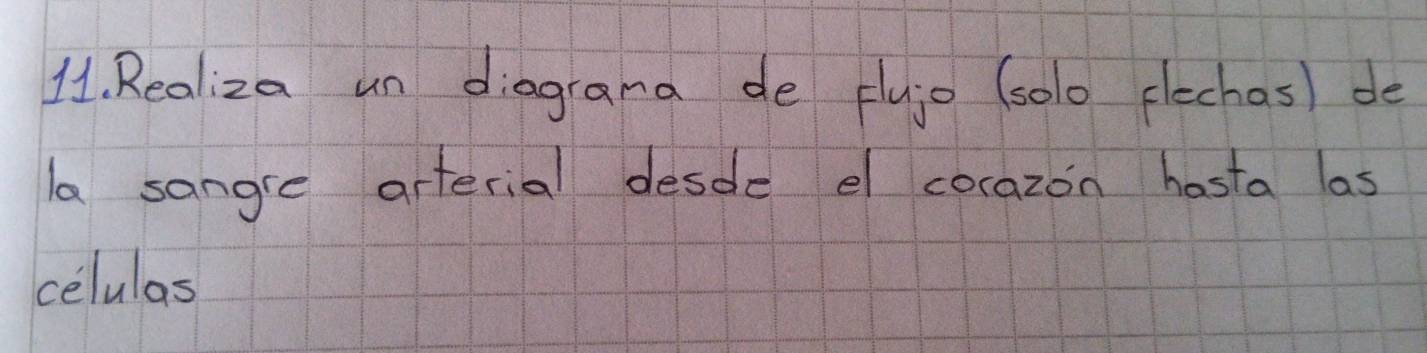 11. Realiza un diagrama de flujo (solo flechas) de
la sangre arterial desde el corazón hasta las
células